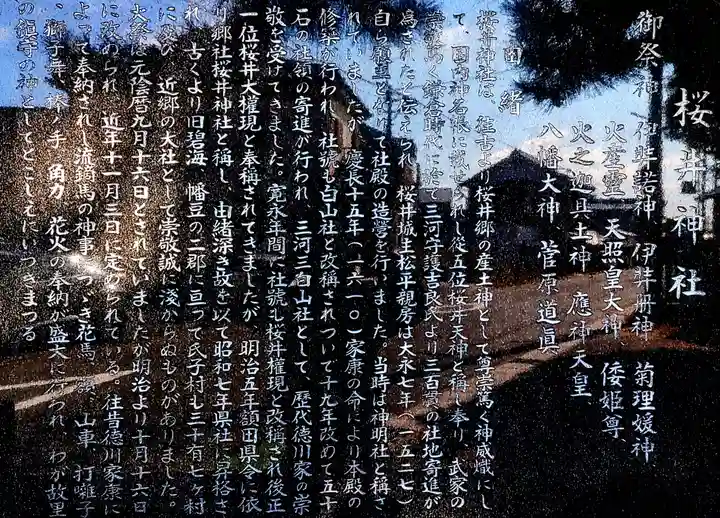 桜井神社
御祭神 伊弉諾神 伊弉册神 菊理媛神
火産霊 天照皇大神、倭姫尊、
火之迦具土神 應神天皇
八幡大神、菅原道眞
由緒
桜井神社は、往古より桜井郷の産土神として尊崇篤く神威熾にし
て、国内神名帳に記せられし従五位桜井天神と称し奉り 武家の
崇敬篤く鎌倉時代に於て三河守護吉良氏より三百貫の社地寄進が
為されたと伝えられ 桜井城主松平親房は大永七年(一五二七)
自ら願主となって社殿の造営を行いました。当時は神明社と称さ
れていましたが 慶長十五年(一六一〇)家康の命により本殿の
修築が行われ 社號も白山社と改称されついで十九年改めて五十
石の社領の寄進が行われ 三河三白山社として 歴代徳川家の崇
敬を受けてきました。寛永年間 社號も桜井権現と改称され後正
一位桜井大権現と奉称されてきましたが 明治五年額田県令に依
り郷社桜井神社と称し 由緒深き故を以て昭和七年県社に昇格さ
れ 古くより旧碧海 幡豆の二郡に亘って氏子村も三十有七ヶ村
に及び 近郷の大社として崇敬誠に淺からぬものがありました。
大祭は元陰暦九月十六日とされていましたが明治より十月十六日
に改められ 近年十一月三日に定められている。往昔徳川家康に
よって奉納されし流鏑馬の神事につゞき花馬 山車、打囃子
、獅子舞、棒の手、角力 花火の奉納が盛大に行われ、わが故里
の鎮守の神としてとこしえにいつきまつる